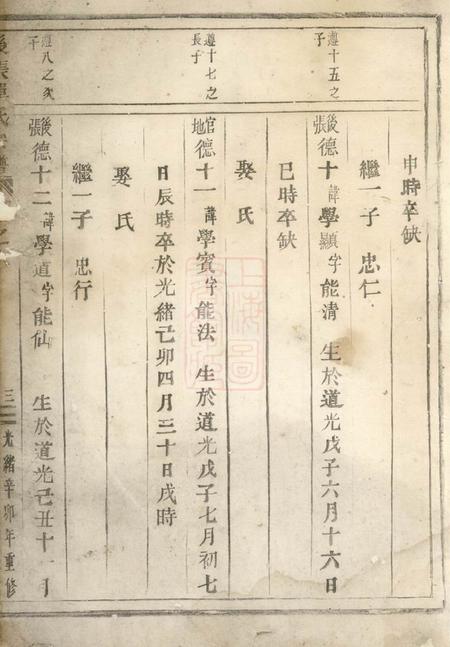 申時卒缺
繼一子 忠仁
遵十五之子
後張德十諱學顯字能清 生於道光戊子六月十六日
巳時卒缺
娶氏
遵十七之長子
官地德十一諱學賓字能法 生於道光戊子七月初七
日辰時卒於光緒己卯四月三十日戌時
娶氏
繼一子 忠行
遵八之次子
後張德十二諱學道字能仙 生於道光己丑十一月
三 光緒辛卯年重修